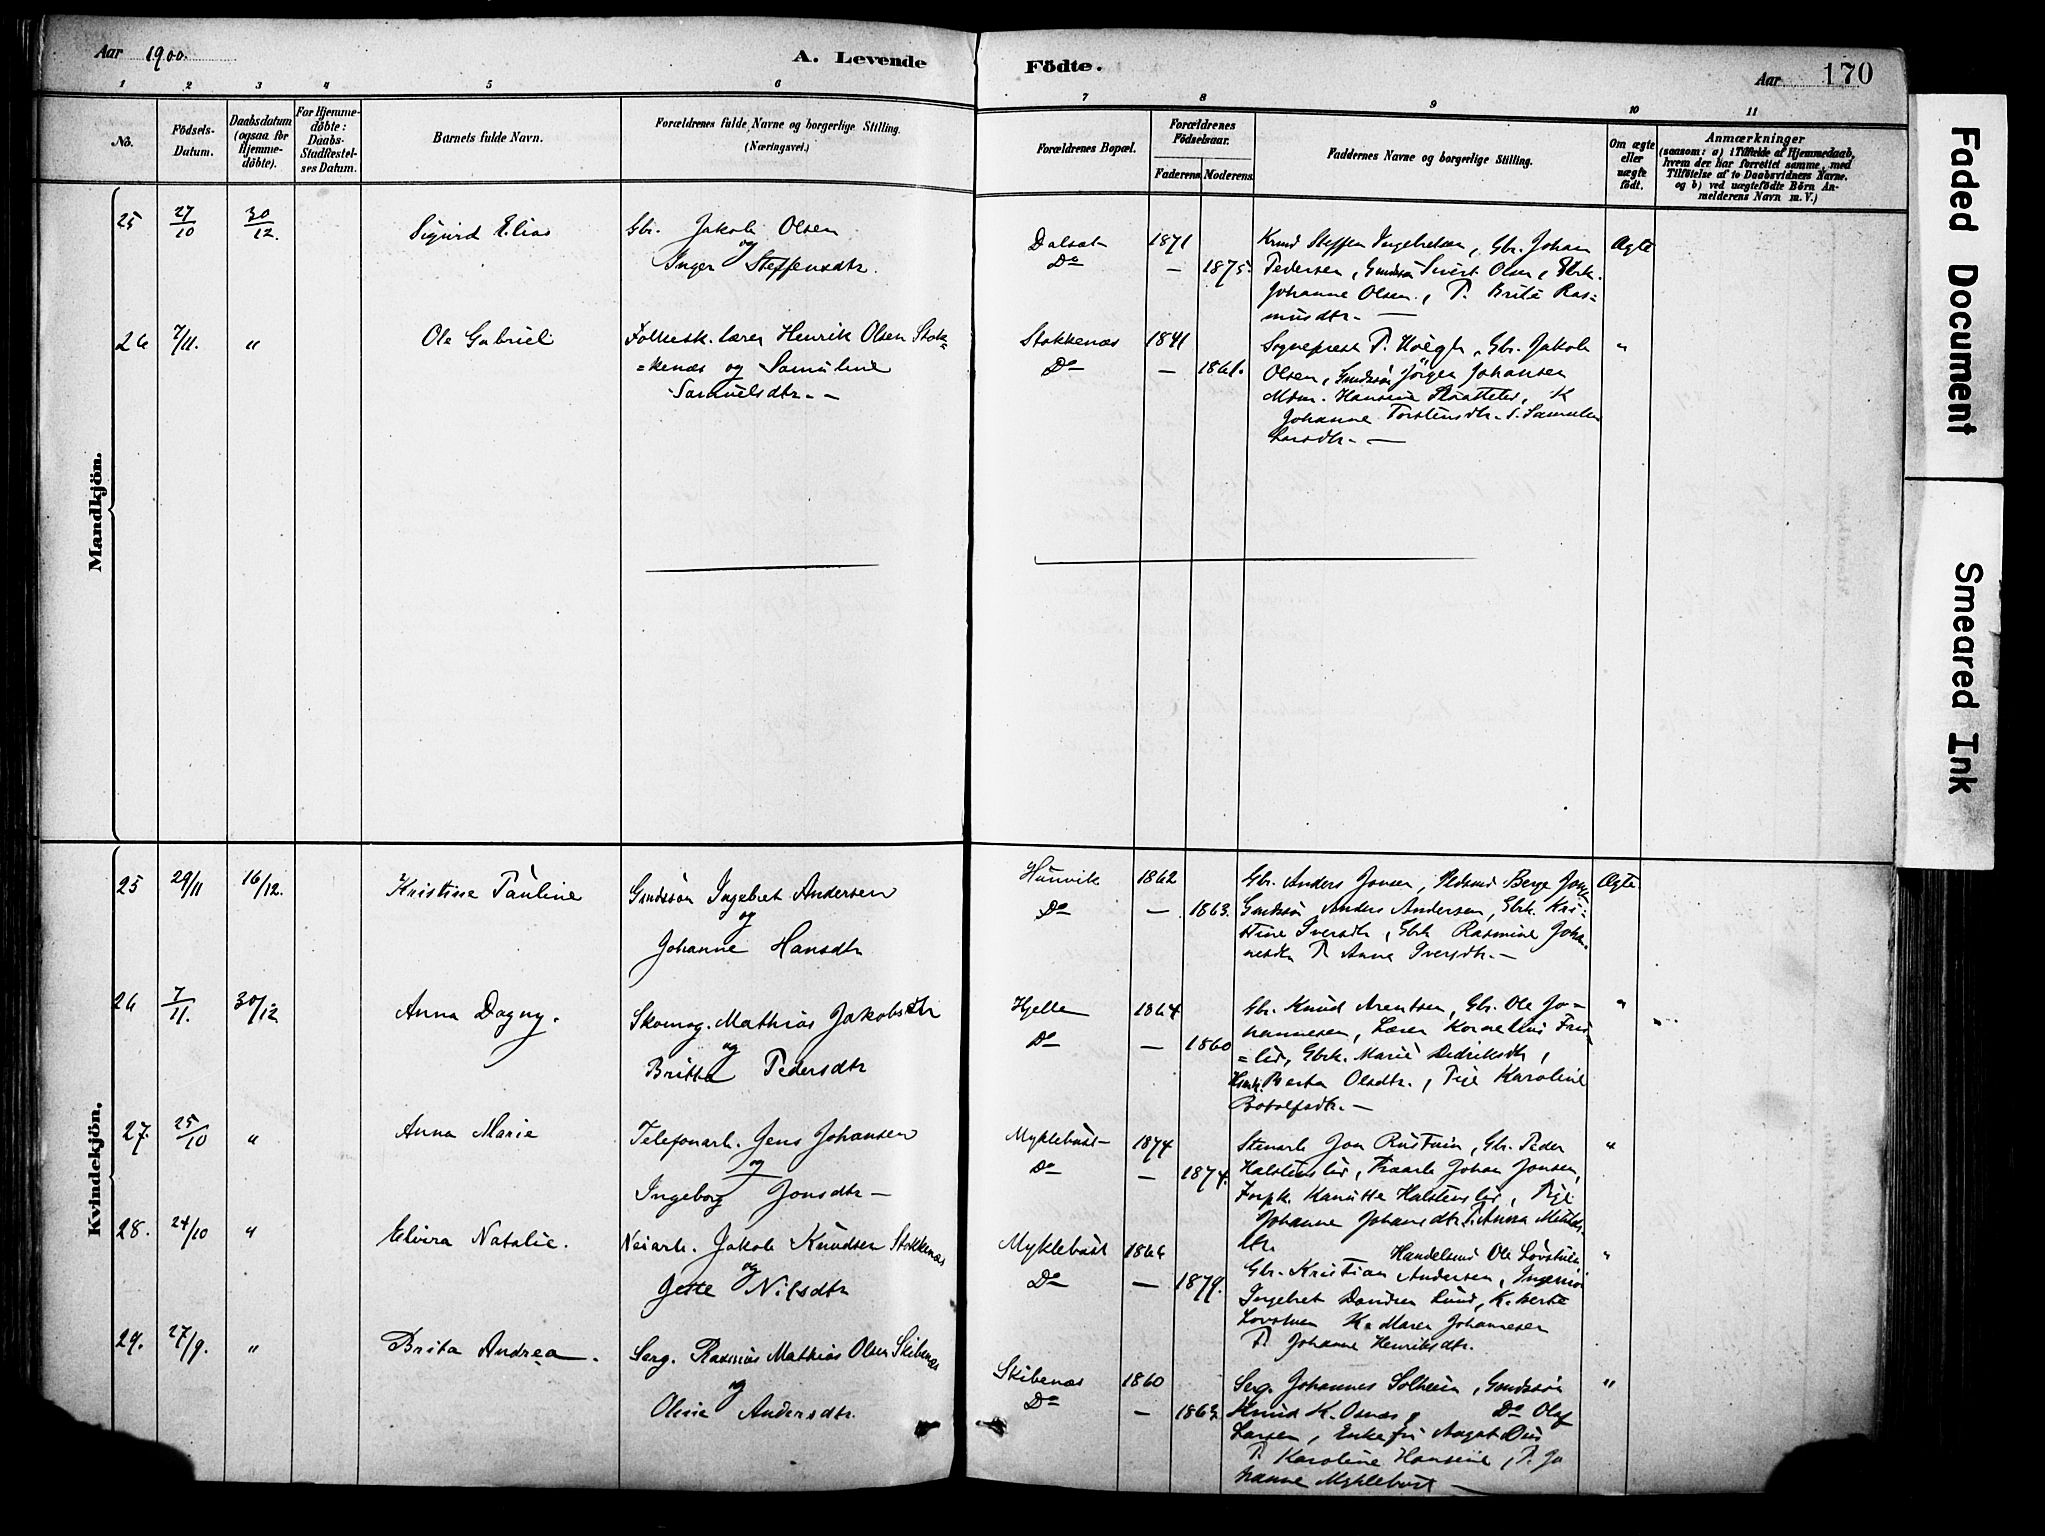 Aar 1900.
A. Levende Födte.
Aar 170
1 2 3 4 5 6 7 8 9 10 11
No.
Födsels-
Datum.
Daabsdatum
(ogsaa for
Hjemme-
döbte).
For Hjemme-
döbte:
Daabs-
Stadfæstel-
ses Datum.
Barnets fulde Navn.
Forældrenes fulde Navne og borgerlige Stilling.
(Næringsvei.)
Forældrenes Bopæl.
Forældrenes
Födselsaar.
Faderens. Moderens.
Faddernes Navne og borgerlige Stilling.
Om ægte
eller
uægte
födt.
Anmærkninger
(saasom: a) i Tilfælde af Hjemmedaab,
hvem der har forrettet samme, med
Tilföielse af to Daabsvidners Navne.
og b) ved uægtefödte Börn An-
melderens Navn m. V.)
Mandkjön.
25 27/10 30/12. Sigurd Elias Gbr. Jakob Olsen
og
Inger Steffensdtr.
Dalsat 1871
Do — 1875.
Steffen Ingebretsen, Gbr. Johan
Pedersen, Gmdssön Sivert Olsen, Gbrk.
Johanne Olsen, P. Brite Ras=
musdtr. —
Ægte
26 7/11. " Ole Gabriel Folkesk. lærer Henrik Olsen Stok=
=kenæs og Samuline
Samuelsdtr. —
Stokkenæs 1841
Do — 1861.
Sogneprest P. Höegh, Gbr. Jakob
Olsen, Gmdssön Jörgen Johansen
Mdm. Hansine K
Johanne Torstensdtr. P.
Larsdtr. —
"
Kvindekjön.
25 29/11 16/12. Kristine Pauline Gmdssön Ingebret Andersen
og
Johanne Hansdtr
Hunvik 1862
Do — 1863.
Gbr. Anders Jonsen, Berge
Gmdssön Anders Andersen, Gbrk. Kri=
stine Iversdtr, Gbrk Rasmine Johan=
nesdtr P. Anne Iversdtr. —
Ægte
26 7/11. 30/12 Anna Dagny. Skomag. Mathias Jakobsen
og
Britta Pedersdtr
Hjelle 1864
Do — 1860
Gbr. Knud Arentsen, Gbr. Ole Jo=
hannesen, Lærer Kornelius
=lid, Gbrk. Marie Dedriksdtr,
Berta Olsdtr., Pige Karoline
Botolfsdtr. —
"
27. 25/10 " Anna Marie Telefonarb. Jens Johansen
og
Ingeborg Jonsdtr —
Myklebust 1874
Do — 1874.
Stenarb Jon Gbr. Peder
Halstenslid, Johan Jonsen,
Forpk. Kanutte Halstenslid, Pige
Johanne Johansdtr. P. Anna
"
28. 24/10 " Elvira Natalie. Veiarb. Jakob Knudsen Stokkenæs
og
Jette Nilsdtr
Myklebust 1866
Do — 1879.
Handelsmd Ole Lövstuen
Gbr. Kristian Andersen, Ingeniör
Ingebret Lund, K.
Lövstuen K. Maren Johannesen
P. Johanne Henriksdtr.
"
29. 27/9. " Brita Andrea. Serg. Rasmus Mathias Olsen Skibenæs
og
Oline Andersdtr.
Skibenæs 1860
Do — 1863
Serg. Johannes Solheim, Gmdssön
Knud K. Osnæs, Do Olaf
Larsen, Enkefru Aagot
P. Karoline Hansine, P. Jo
hanne Myklebust —
"
Faded Document
Smeared Ink